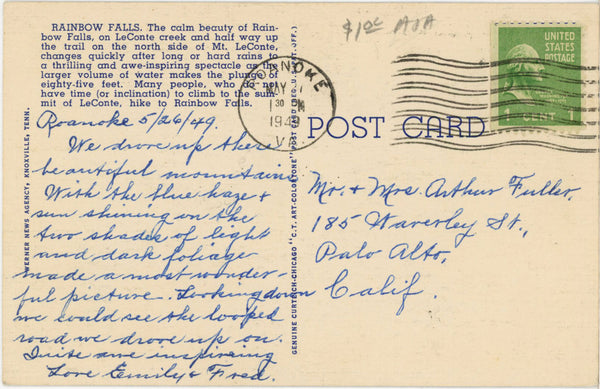 RAINBOW FALLS. The calm beauty of Rain-
bow Falls, on LeConte creek and half way up
the trail on the north side of Mt. LeConte,
changes quickly after long or hard rains to
a thrilling and awe-inspiring spectacle as the
larger volume of water makes the plunge of
eighty-five feet. Many people, who do not
have time (or inclination) to climb to the sum-
mit of LeConte, hike to Rainbow Falls.
Roanoke 5/26/49.
We drove up there
beautiful mountains
With the blue haze &
sun shining on the
two shades of light
and dark foliage
made a most wonder-
ful picture. Looking down
we could see the looped
road we drove up on.
Quite awe inspiring
Love Emily & Fred.
WERNER NEWS AGENCY, KNOXVILLE, TENN.
GENUINE CURTEICH-CHICAGO "C.T. ART-COLORTONE" POST CARD (REG. U.S. PAT. OFF.)
ROANOKE
MAY
1 30
194
V
UNITED
STATES
POSTAGE
1 CENT
POST CARD
Mr. & Mrs. Arthur Fuller.
185 Waverley St.,
Palo Alto,
Calif.